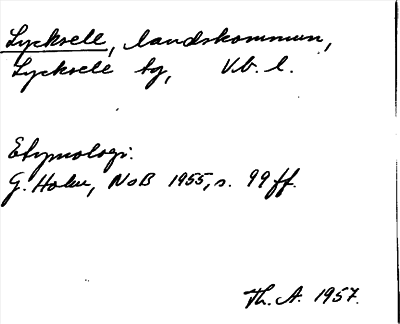 Lycksele, landskommun,
Lycksele tg, Vb. l.
Etymologi:
G. Holm, NoB 1955, s. 99 ff.
Th. A. 1957.